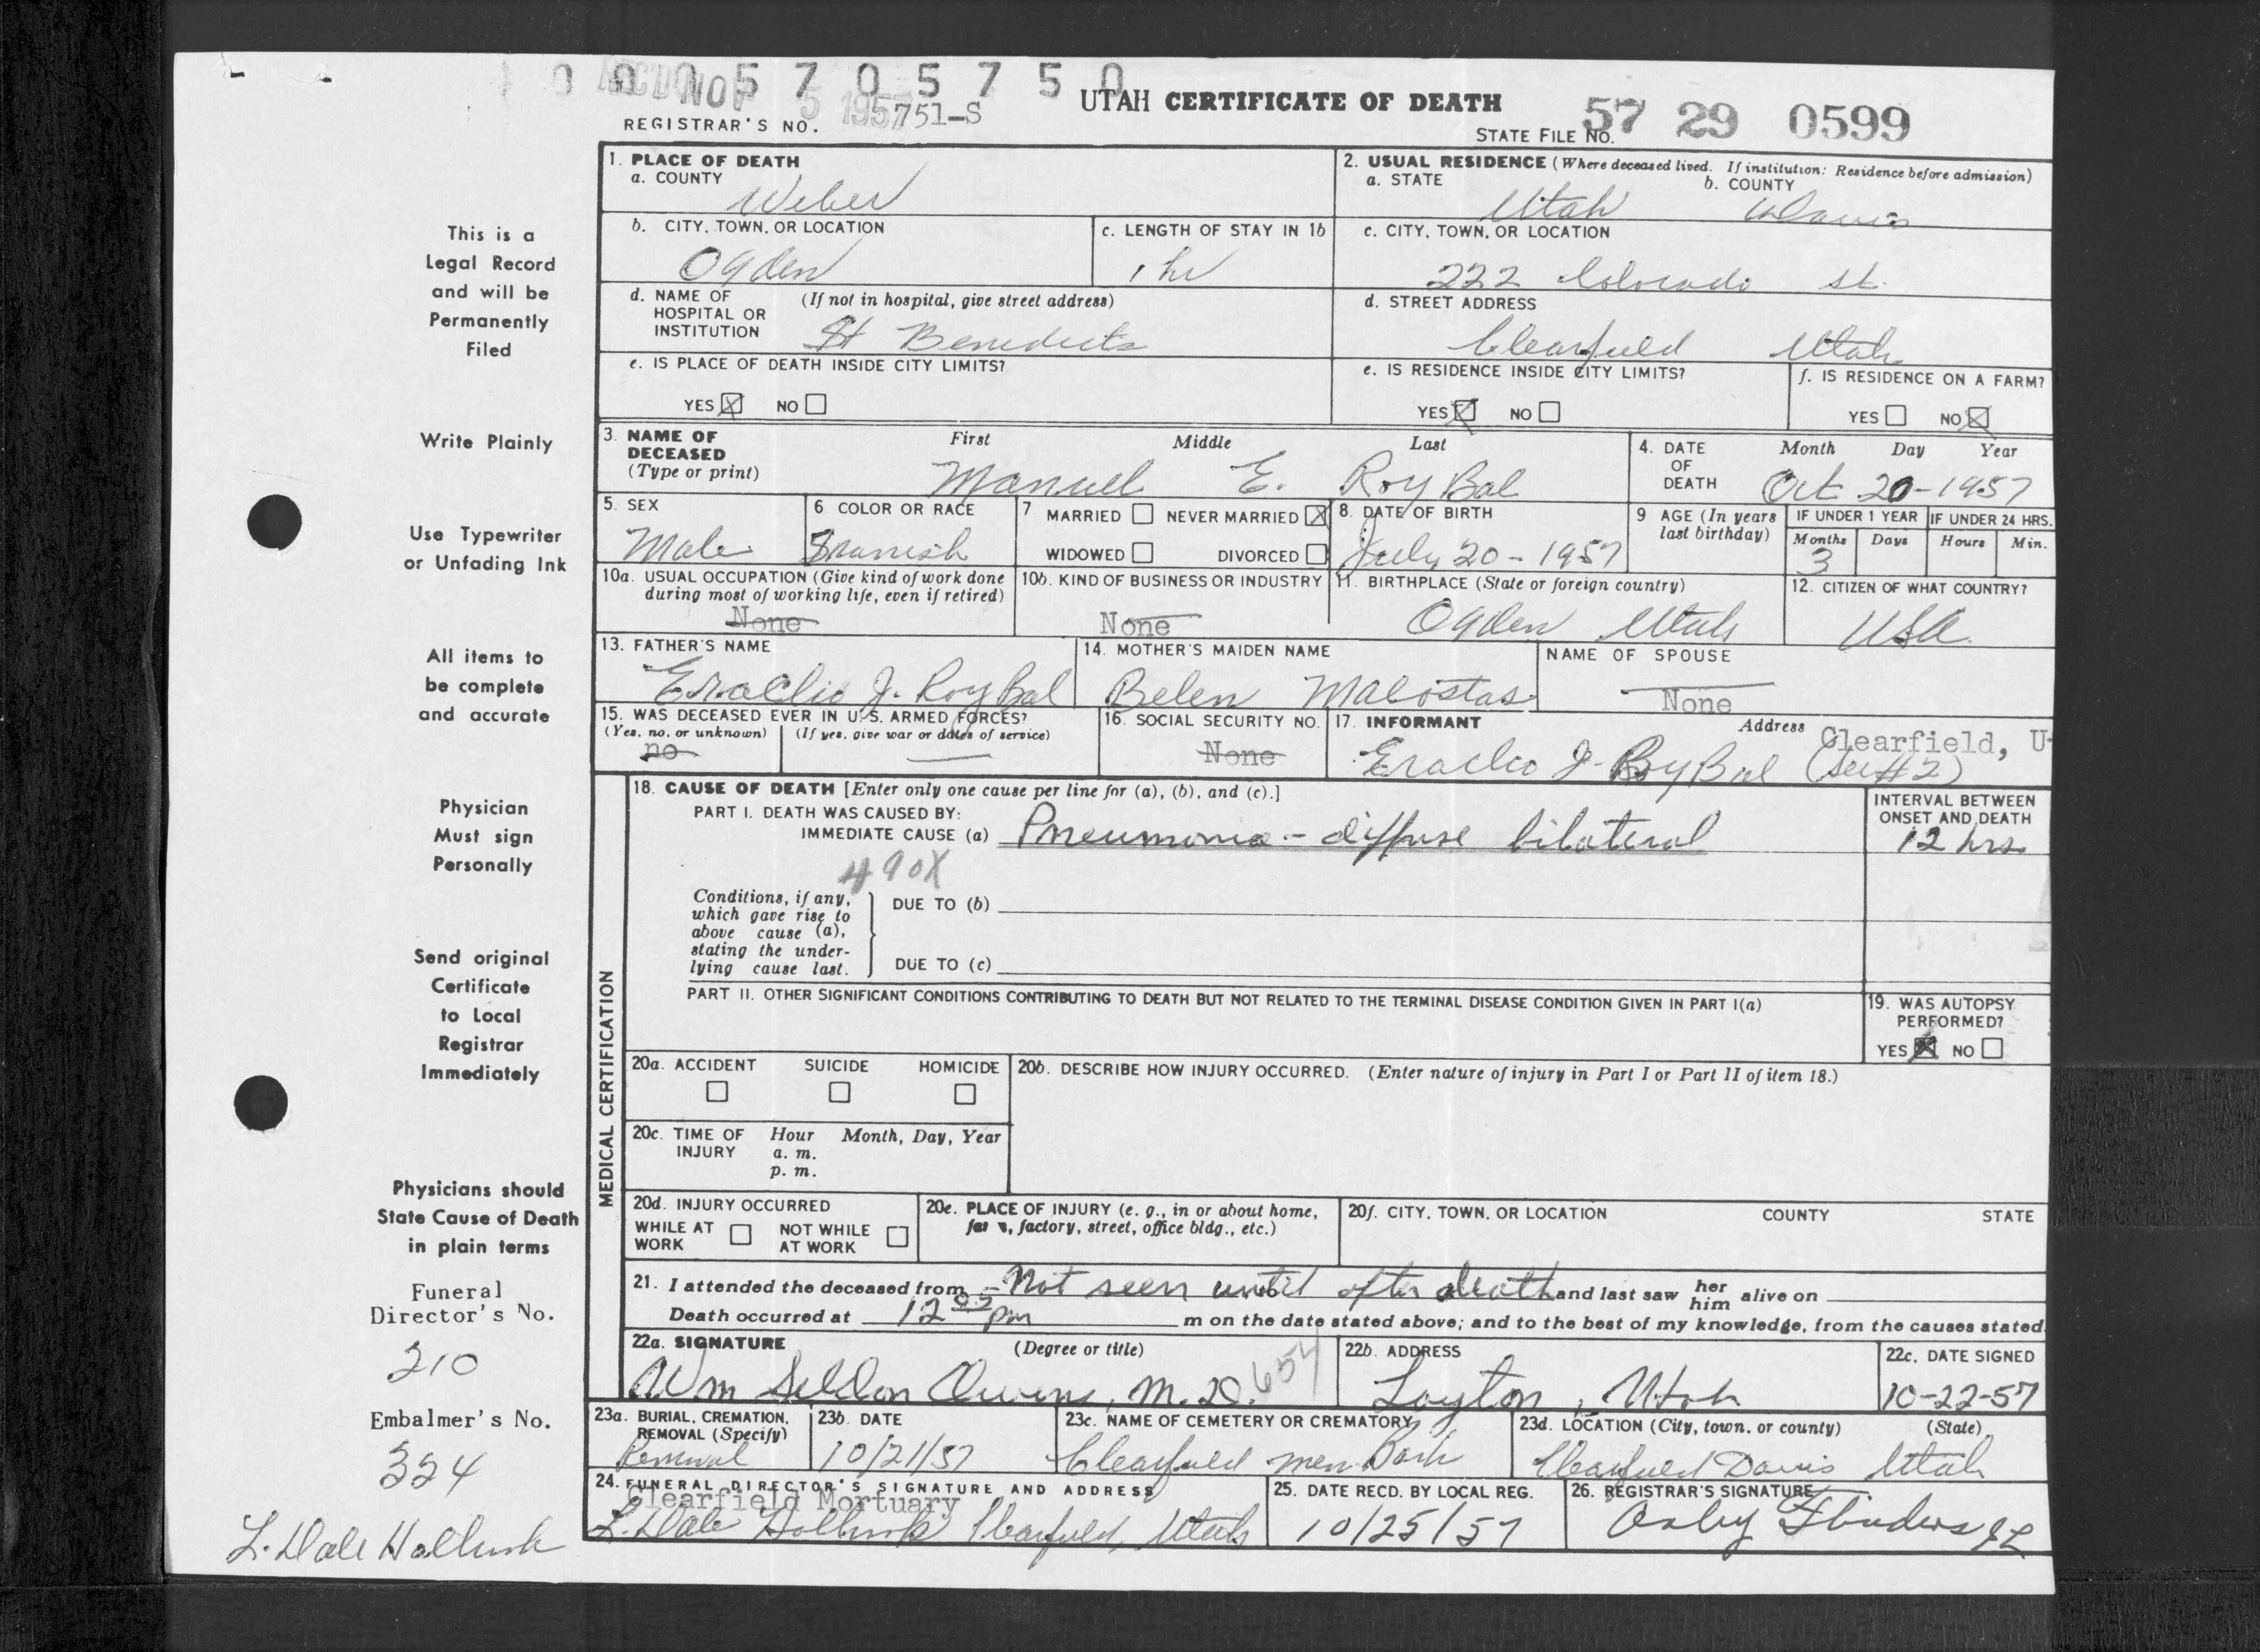 0 0 0 5 7 0 5 7 5 0
REC'D NOV 5 1957
REGISTRAR'S NO. 751-S
UTAH CERTIFICATE OF DEATH
STATE FILE NO. 57 29 0599
This is a
Legal Record
and will be
Permanently
Filed
Write Plainly
Use Typewriter
or Unfading Ink
All items to
be complete
and accurate
Physician
Must sign
Personally
Send original
Certificate
to Local
Registrar
Immediately
Physicians should
State Cause of Death
in plain terms
Funeral
Director's No.
210
Embalmer's No.
324
L. Dale Holbrook
1. PLACE OF DEATH
a. COUNTY
Weber
2. USUAL RESIDENCE (Where deceased lived. If institution: Residence before admission)
a. STATE b. COUNTY
Utah Davis
b. CITY, TOWN, OR LOCATION
Ogden
c. LENGTH OF STAY IN 1b
1 hr
c. CITY, TOWN, OR LOCATION
222 Colorado St.
d. NAME OF (If not in hospital, give street address)
HOSPITAL OR
INSTITUTION St Benedicts
d. STREET ADDRESS
Clearfield Utah
e. IS PLACE OF DEATH INSIDE CITY LIMITS?
YES X NO
e. IS RESIDENCE INSIDE CITY LIMITS?
YES X NO
f. IS RESIDENCE ON A FARM?
YES NO X
3. NAME OF First Middle Last
DECEASED
(Type or print) Manuel E. RoyBal
4. DATE Month Day Year
OF
DEATH Oct 20-1957
5. SEX
Male
6. COLOR OR RACE
Spanish
7. MARRIED NEVER MARRIED X
WIDOWED DIVORCED
8. DATE OF BIRTH
July 20-1957
9 AGE (In years
last birthday)
IF UNDER 1 YEAR IF UNDER 24 HRS.
Months Days Hours Min.
3
10a. USUAL OCCUPATION (Give kind of work done
during most of working life, even if retired)
None
10b. KIND OF BUSINESS OR INDUSTRY
None
11. BIRTHPLACE (State or foreign country)
Ogden Utah
12. CITIZEN OF WHAT COUNTRY?
USA.
13. FATHER'S NAME
Eraclio J. RoyBal
14. MOTHER'S MAIDEN NAME
Belen Malostas
NAME OF SPOUSE
None
15. WAS DECEASED EVER IN U.S. ARMED FORCES?
(Yes, no, or unknown) (If yes, give war or dates of service)
no —
16. SOCIAL SECURITY NO.
None
17. INFORMANT Address Clearfield, U
Eraclio J. RoyBal (See #2)
MEDICAL CERTIFICATION
18. CAUSE OF DEATH [Enter only one cause per line for (a), (b), and (c).]
PART I. DEATH WAS CAUSED BY:
IMMEDIATE CAUSE (a) Pneumonia - diffuse bilateral
INTERVAL BETWEEN
ONSET AND DEATH
12 hrs
490X
Conditions, if any,
which gave rise to
above cause (a),
stating the under-
lying cause last.
DUE TO (b)
DUE TO (c)
PART II. OTHER SIGNIFICANT CONDITIONS CONTRIBUTING TO DEATH BUT NOT RELATED TO THE TERMINAL DISEASE CONDITION GIVEN IN PART I(a)
19. WAS AUTOPSY
PERFORMED?
YES X NO
20a. ACCIDENT SUICIDE HOMICIDE
20b. DESCRIBE HOW INJURY OCCURRED. (Enter nature of injury in Part I or Part II of item 18.)
20c. TIME OF Hour Month, Day, Year
INJURY a. m.
p. m.
20d. INJURY OCCURRED
WHILE AT WORK NOT WHILE AT WORK
20e. PLACE OF INJURY (e. g., in or about home,
farm, factory, street, office bldg., etc.)
20f. CITY, TOWN, OR LOCATION COUNTY STATE
21. I attended the deceased from - Not seen until after death and last saw her him alive on
Death occurred at 12 05 pm m on the date stated above; and to the best of my knowledge, from the causes stated.
22a. SIGNATURE (Degree or title)
Wm Seldon Owens, M.D. 654
22b. ADDRESS
Layton, Utah
22c. DATE SIGNED
10-22-57
23a. BURIAL, CREMATION,
REMOVAL (Specify)
Removal
23b. DATE
10/21/57
23c. NAME OF CEMETERY OR CREMATORY
Clearfield Mem Park
23d. LOCATION (City, town, or county) (State)
Clearfield Davis Utah
24. FUNERAL DIRECTOR'S SIGNATURE AND ADDRESS
Clearfield Mortuary
L. Dale Holbrook Clearfield, Utah
25. DATE RECD. BY LOCAL REG.
10/25/57
26. REGISTRAR'S SIGNATURE
Flinders